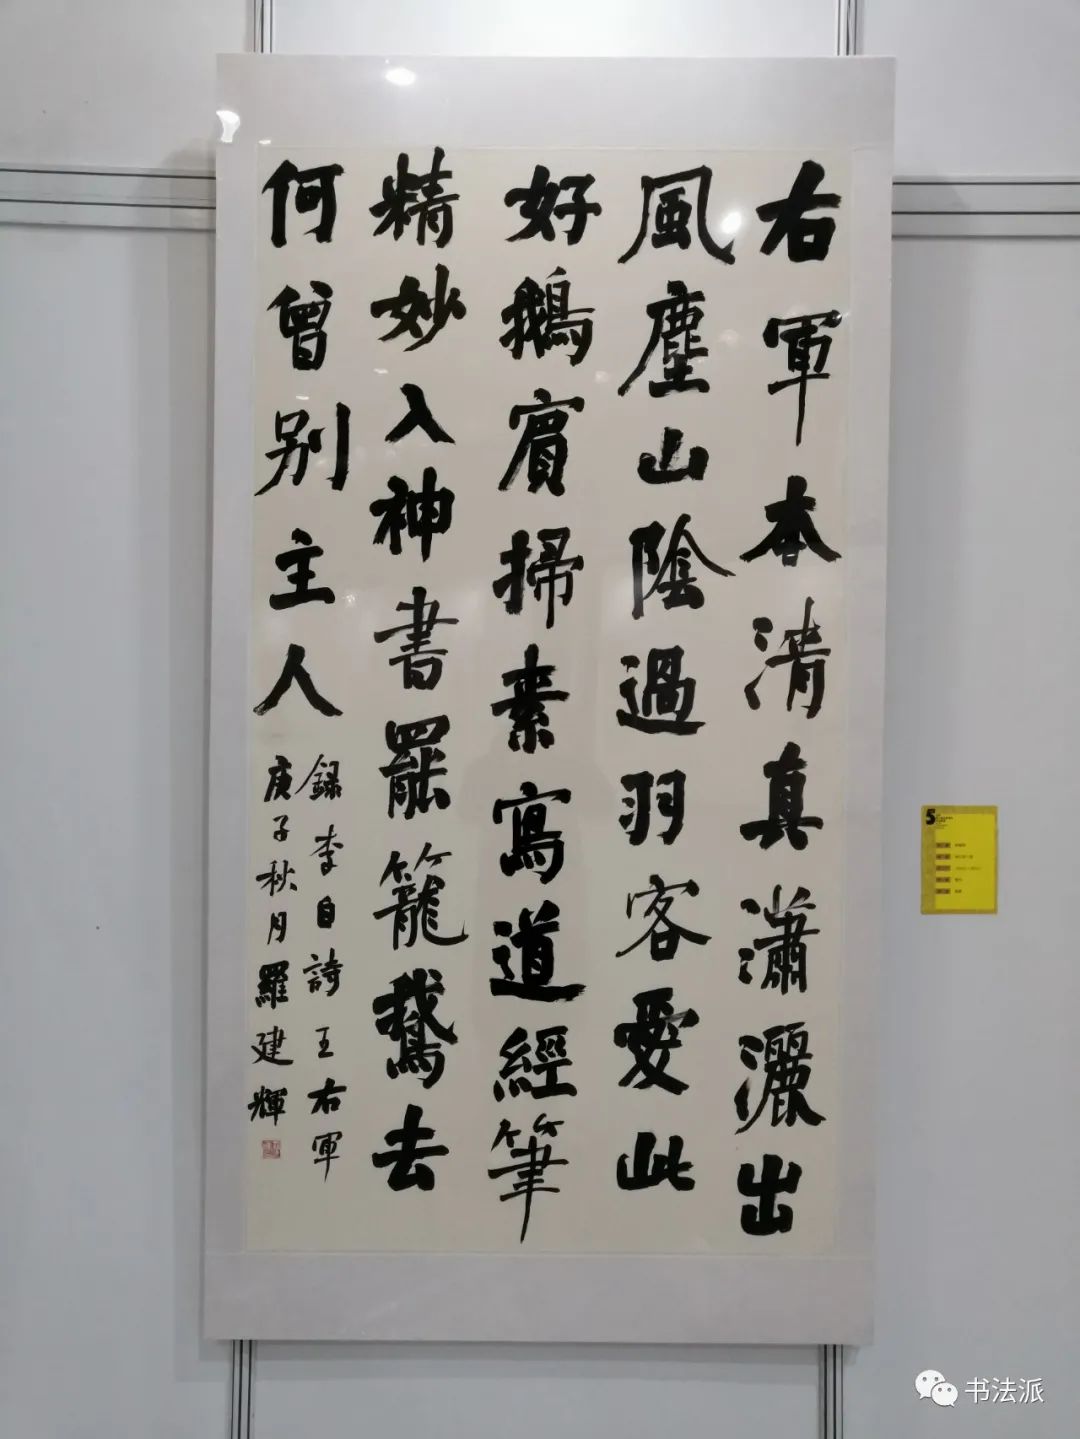 右軍本清真瀟灑出
風塵山陰過羽客愛此
好鵝賓掃素寫道經筆
精妙入神書罷籠鵞去
何曾别主人
録李白詩王右軍
庚子秋月羅建輝
5
书法派